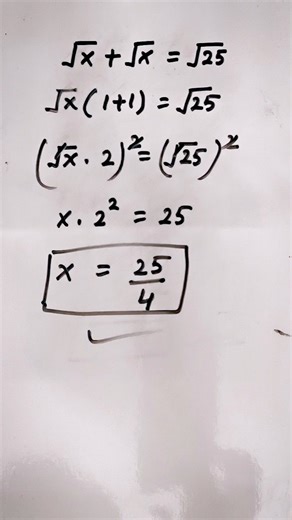 √x + √x = √25
√x (1+1) = √25
(√x · 2)² = (√25)²
x · 2² = 25
x = 25/4